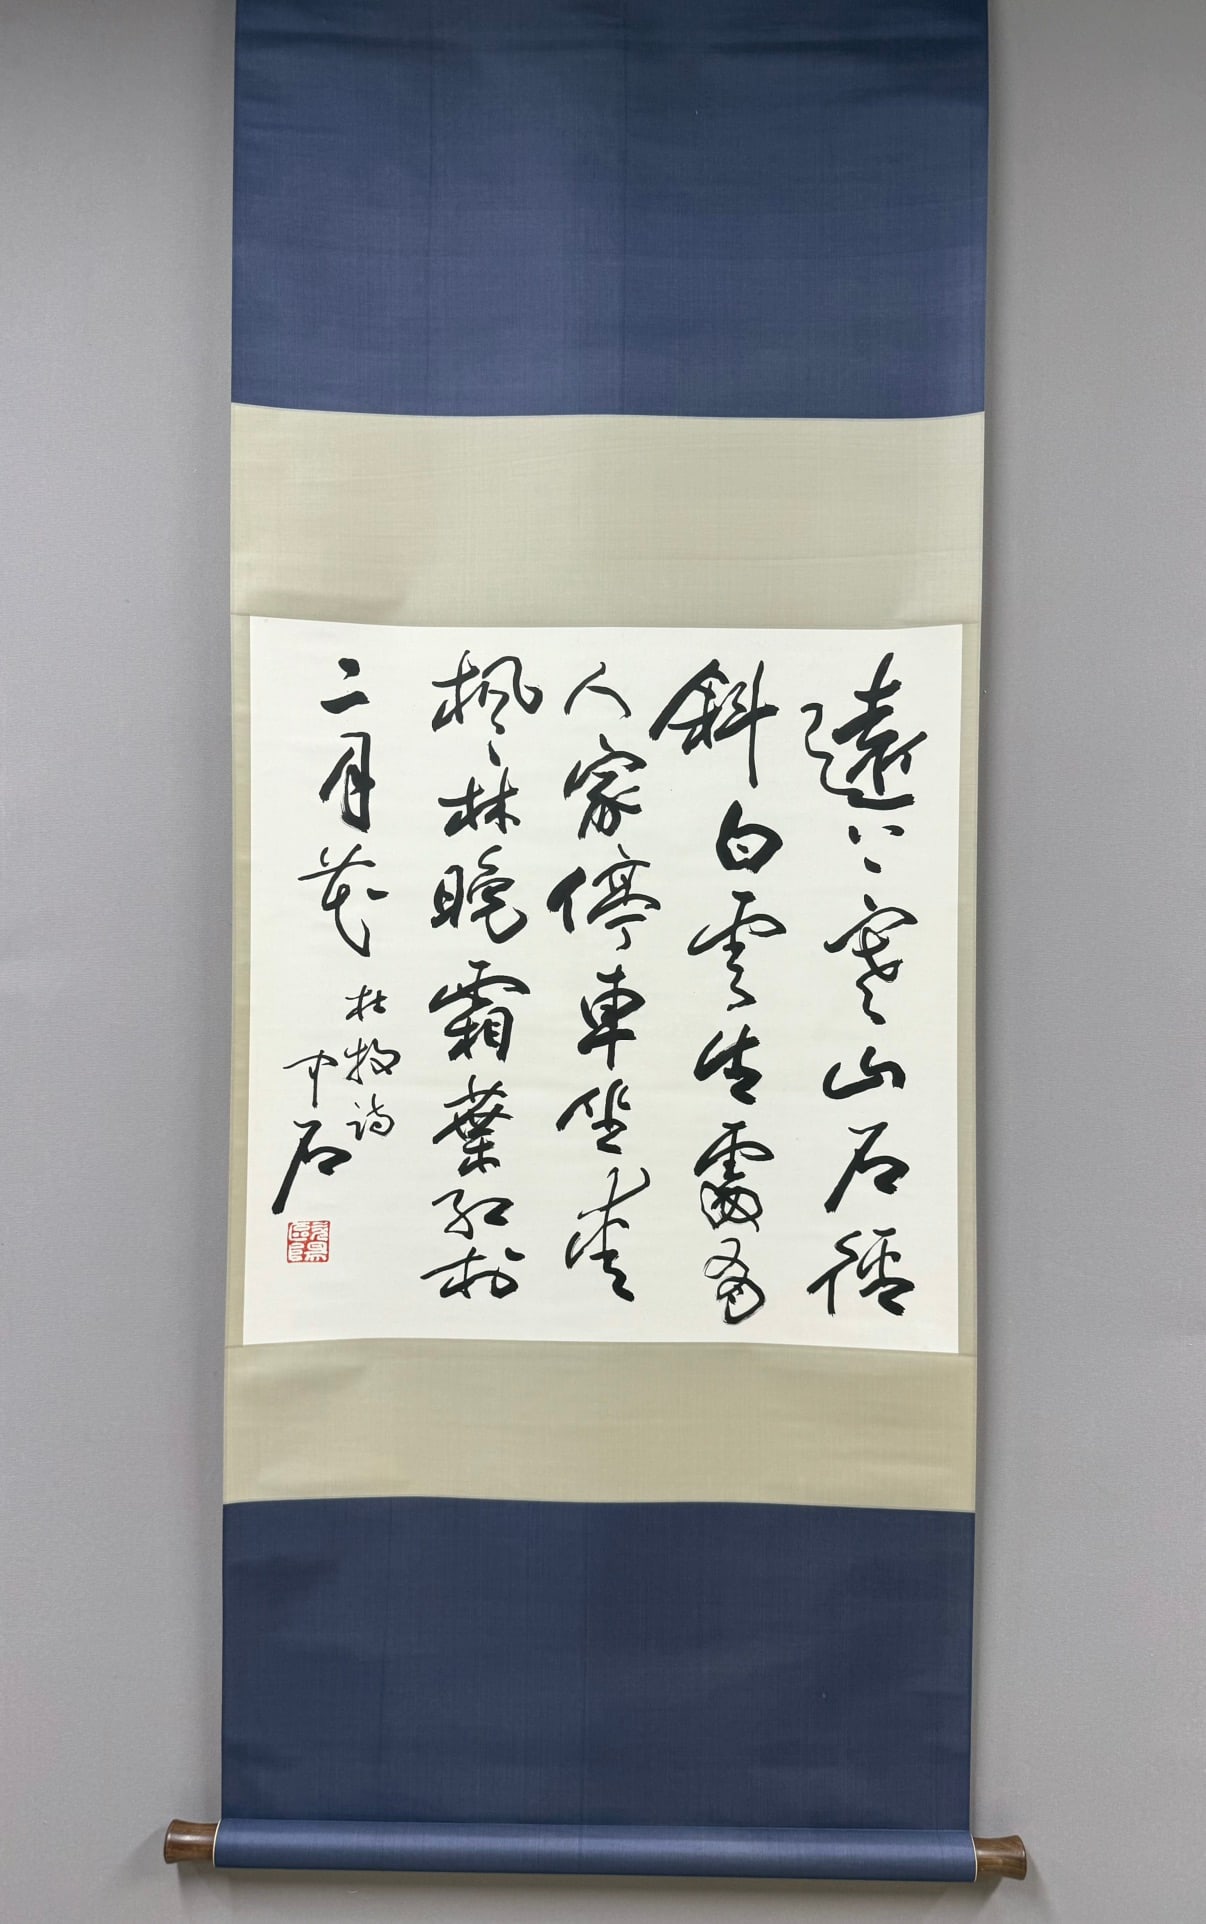 遠上寒山石徑
斜白雲生處有
人家停車坐愛
楓林晚霜葉紅於
二月花
杜牧詩
中石